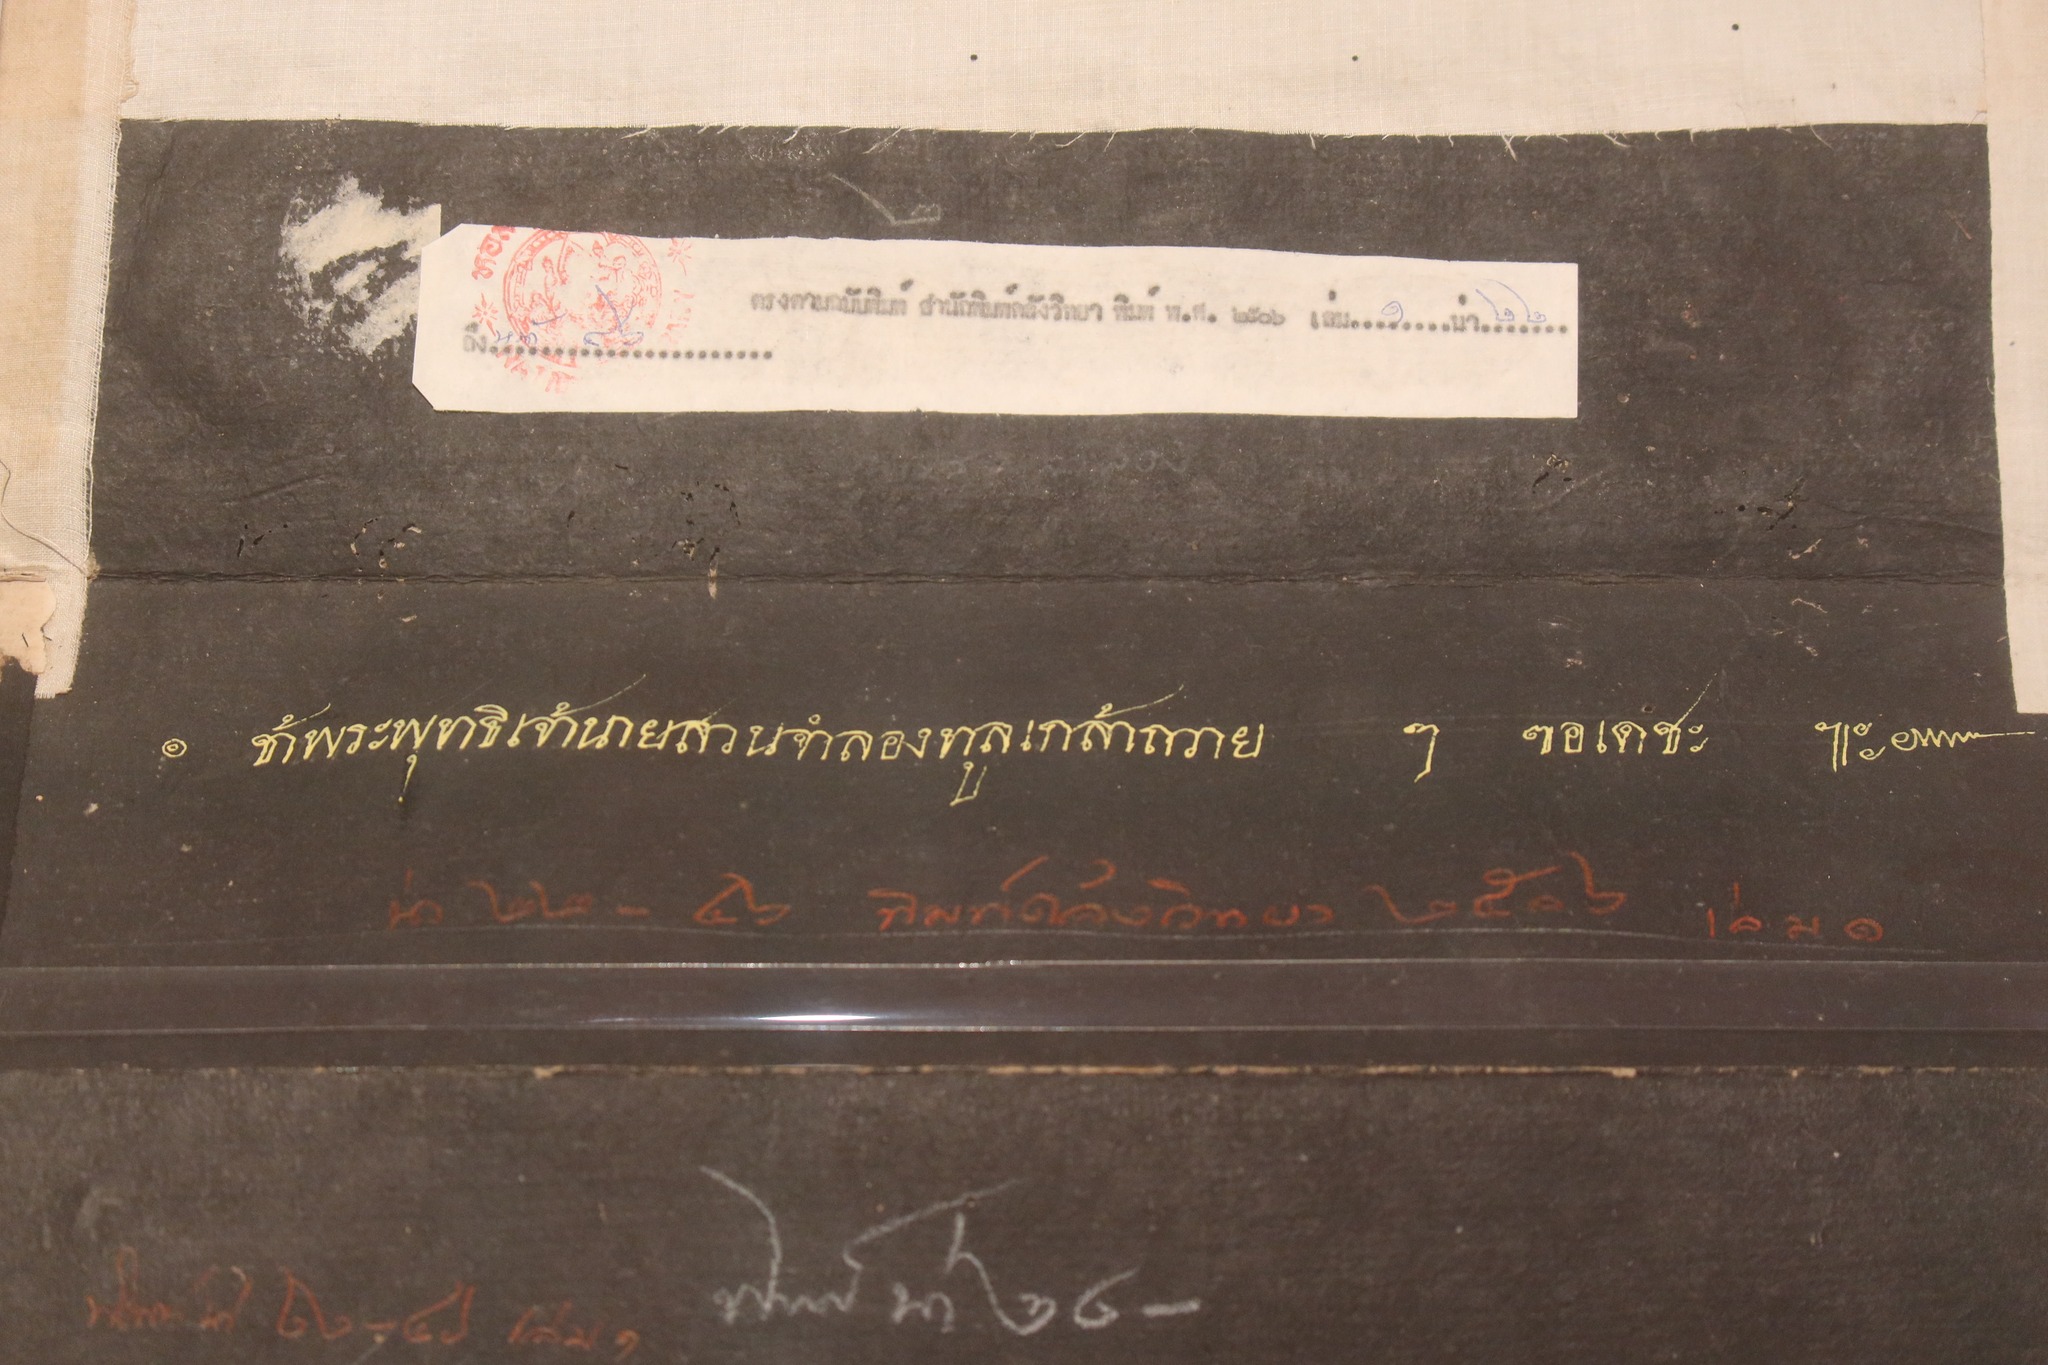 ตรงตามฉบับพิมพ์ สำนักพิมพ์คลังวิทยา พิมพ์ พ.ศ. ๒๕๐๖ เล่ม....๑.....น่า..๒๒.....
ถึง
๑ ข้าพระพุทธิเจ้านายสวนจำลองทูลเกล้าถวาย ๆ ขอเดชะ
น่า ๒๒ - ๔๖ พิมพ์คลังวิทยา ๒๕๐๖ เล่ม ๑
พิมพ์ น่า
เล่ม ๑